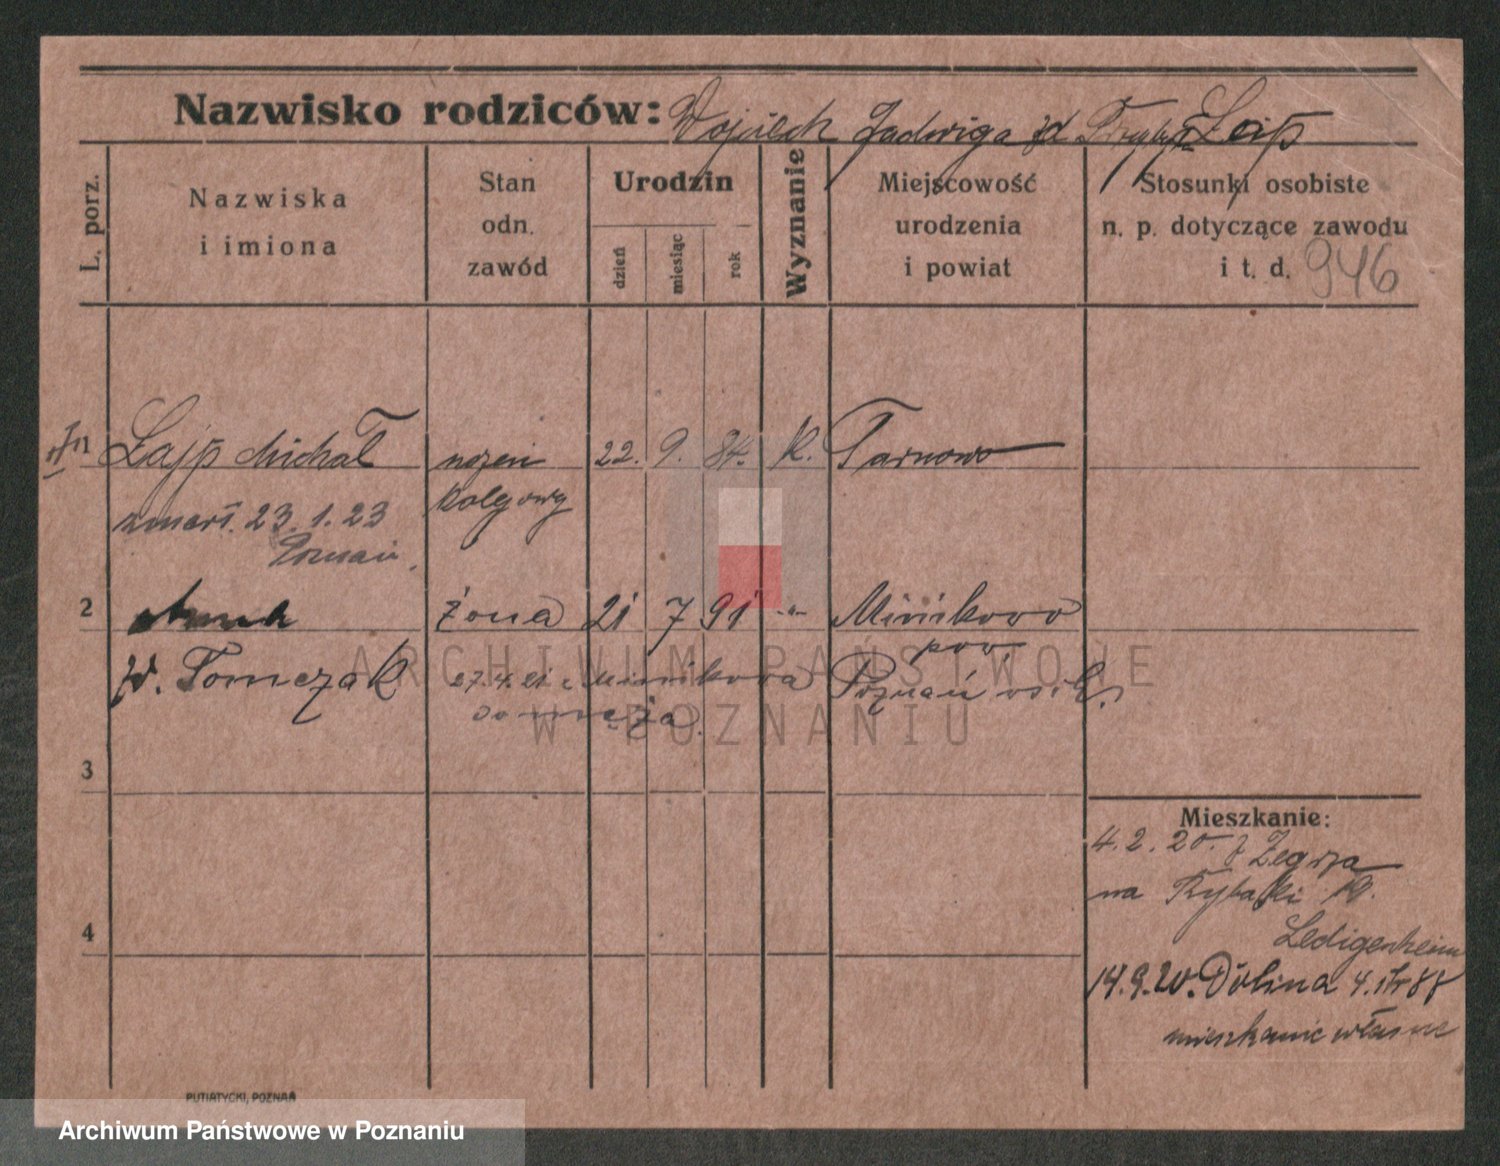 Nazwisko rodziców: Wojciech Jadwiga zd Łajp
L. porz.
Nazwiska
i imiona
Stan
odn.
zawód
Urodzin
dzień
miesiąc
rok
Wyznanie
Miejscowość
urodzenia
i powiat
Stosunki osobiste
n. p. dotyczące zawodu
i t. d. 946
1 Łajp Michał 22. 9. 84. K. Tarnowo
zmarł. 23.1.23
Poznań.
2 żona 21 7 91 -"- Minikowo
pow
zd. Tomczak 27.4.21 z Minikowa Poznań
do męża.
3
4
Mieszkanie:
4.2.20. z Zegrza
na Rybaki 19.
Ledigenheim
14.9.20. Dolina 4.
mieszkanie własne
PUTIATYCKI, POZNAŃ
ARCHIWUM PAŃSTWOWE
W POZNANIU
Archiwum Państwowe w Poznaniu